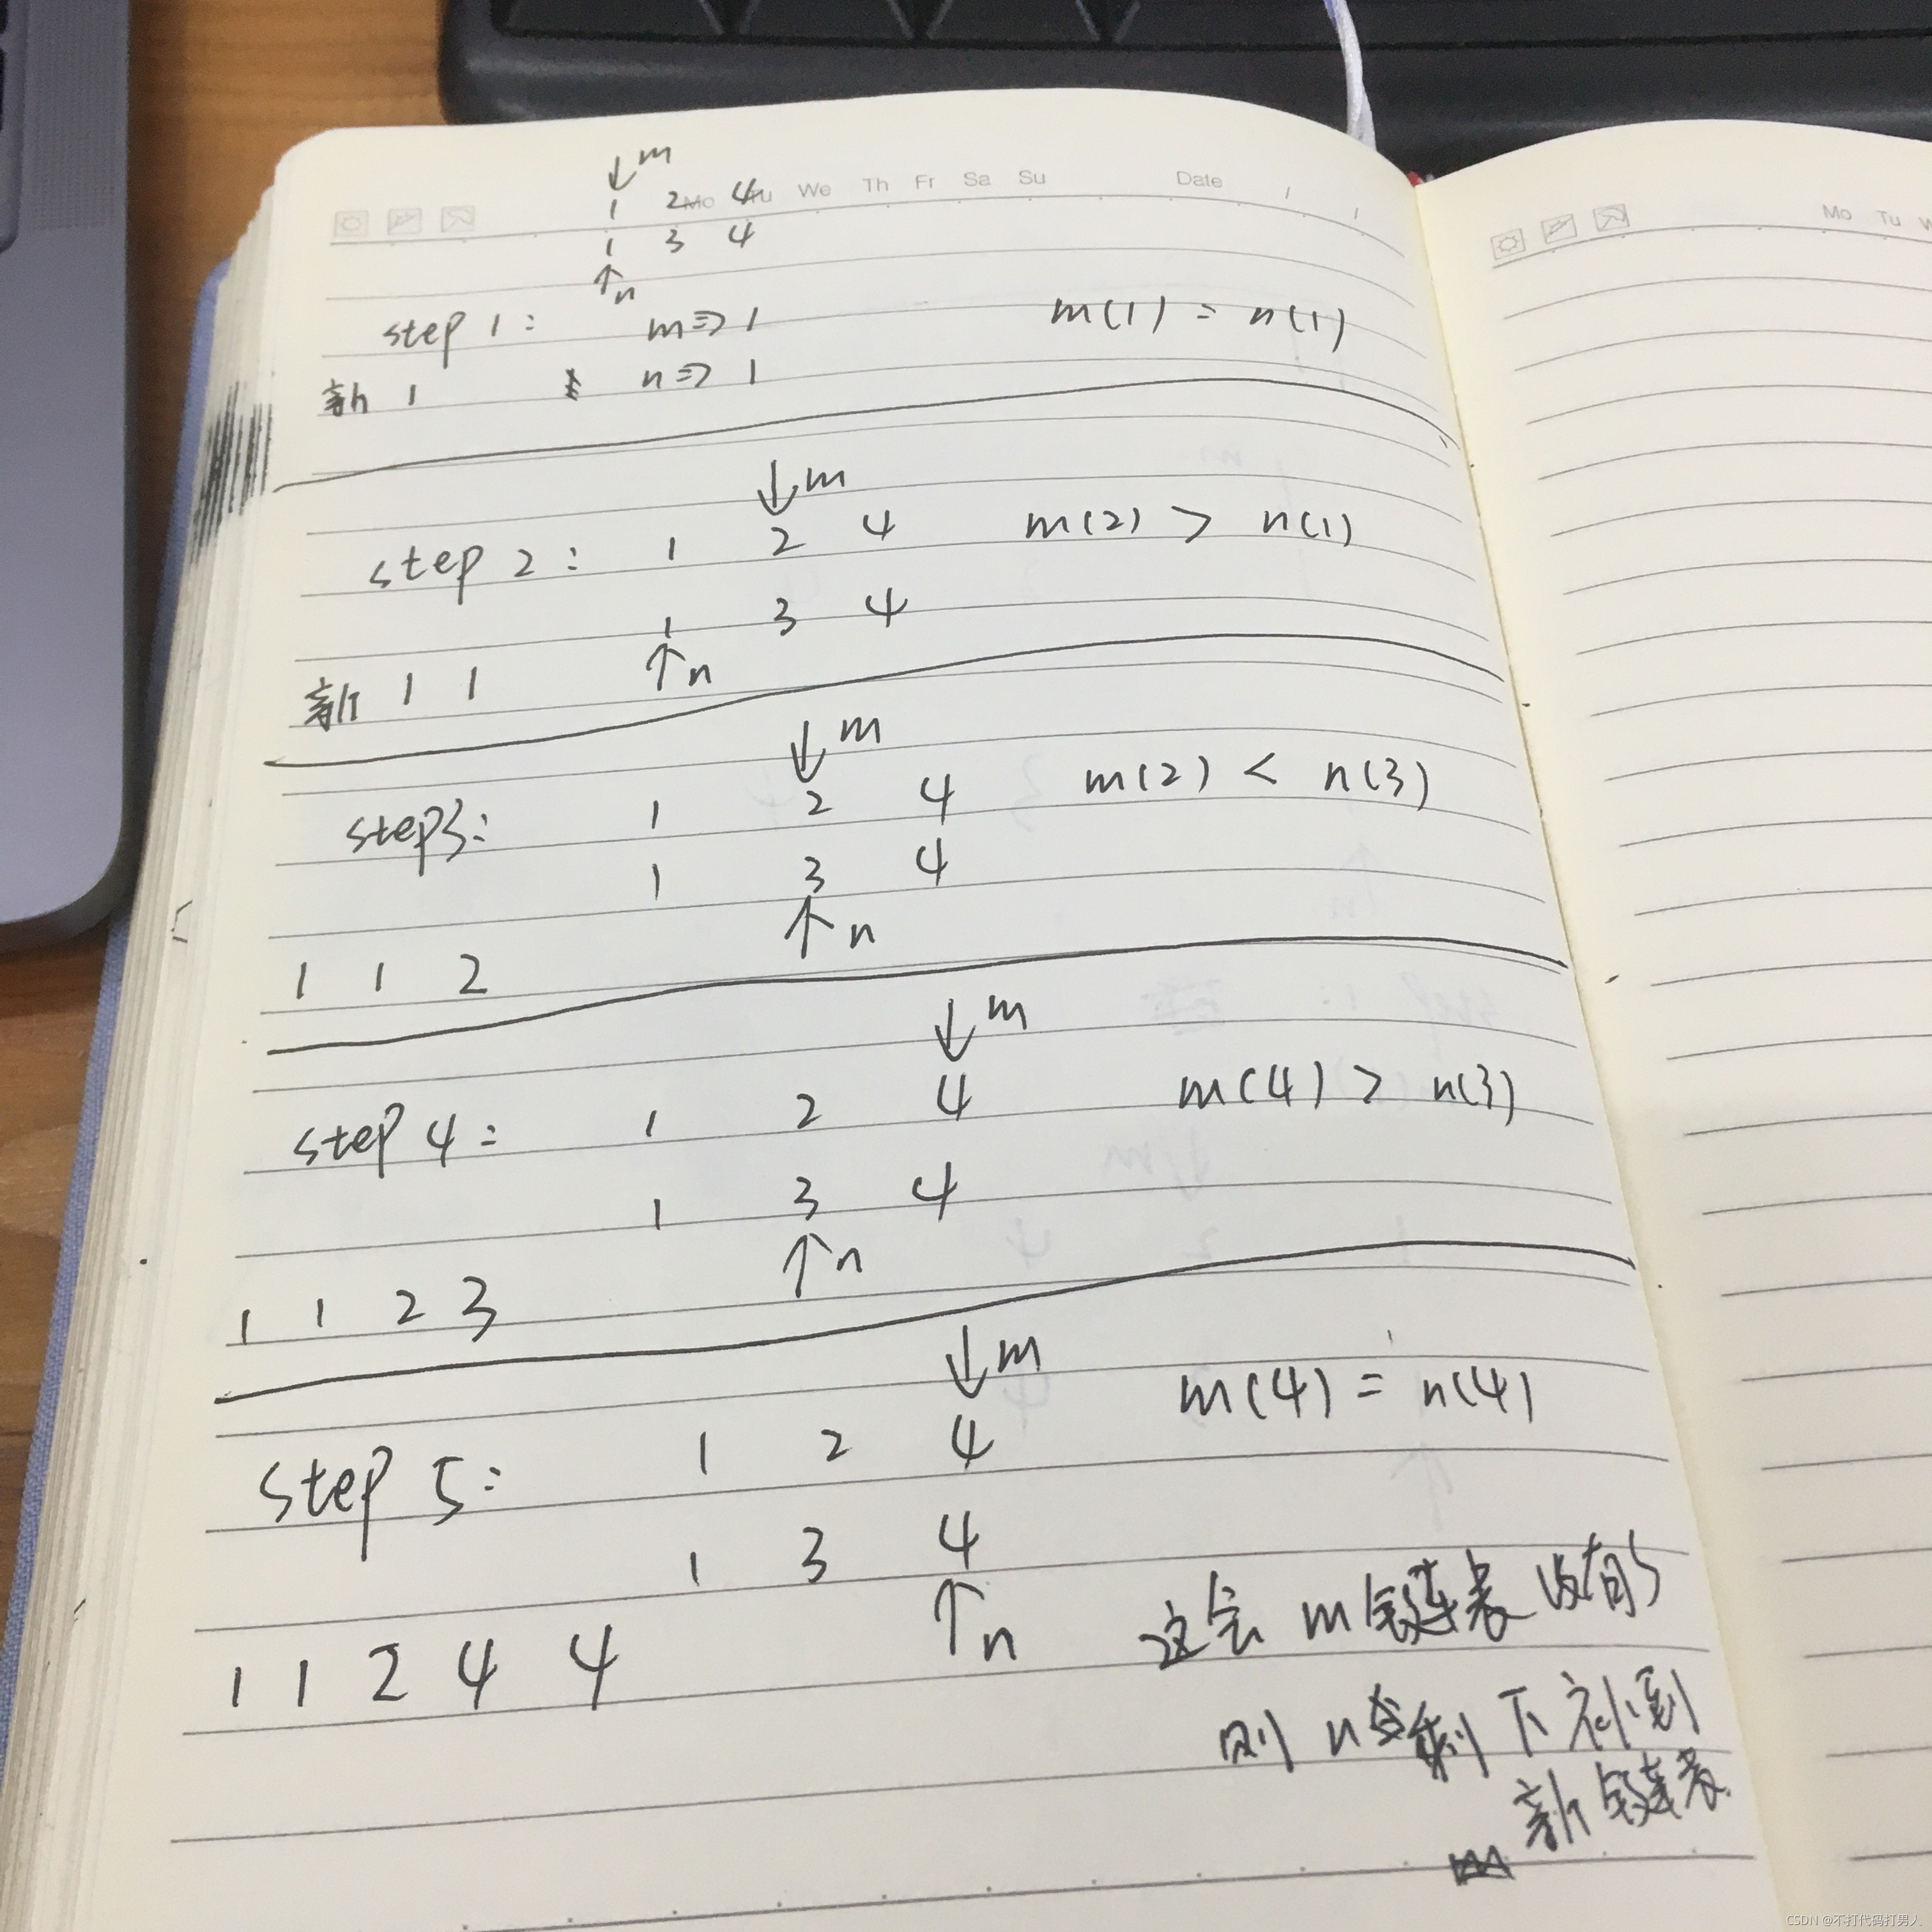 ↓m
Mo Tu We Th Fr Sa Su Date / /
1 2 4
1 3 4
↑n
step 1: m=>1 m(1) = n(1)
新 1 n=>1
↓m
step 2: 1 2 4 m(2) > n(1)
1 3 4
新 1 1 ↑n
↓m
step3: 1 2 4 m(2) < n(3)
1 3 4
↑n
1 1 2
↓m
step 4: 1 2 4 m(4) > n(3)
1 3 4
↑n
1 1 2 3
↓m
step 5: 1 2 4 m(4) = n(4)
1 3 4
↑n
1 1 2 4 4
这会 m链表没有了
则 n 剩下补到
新链表
Mo Tu W
CSDN @不打代码打男人